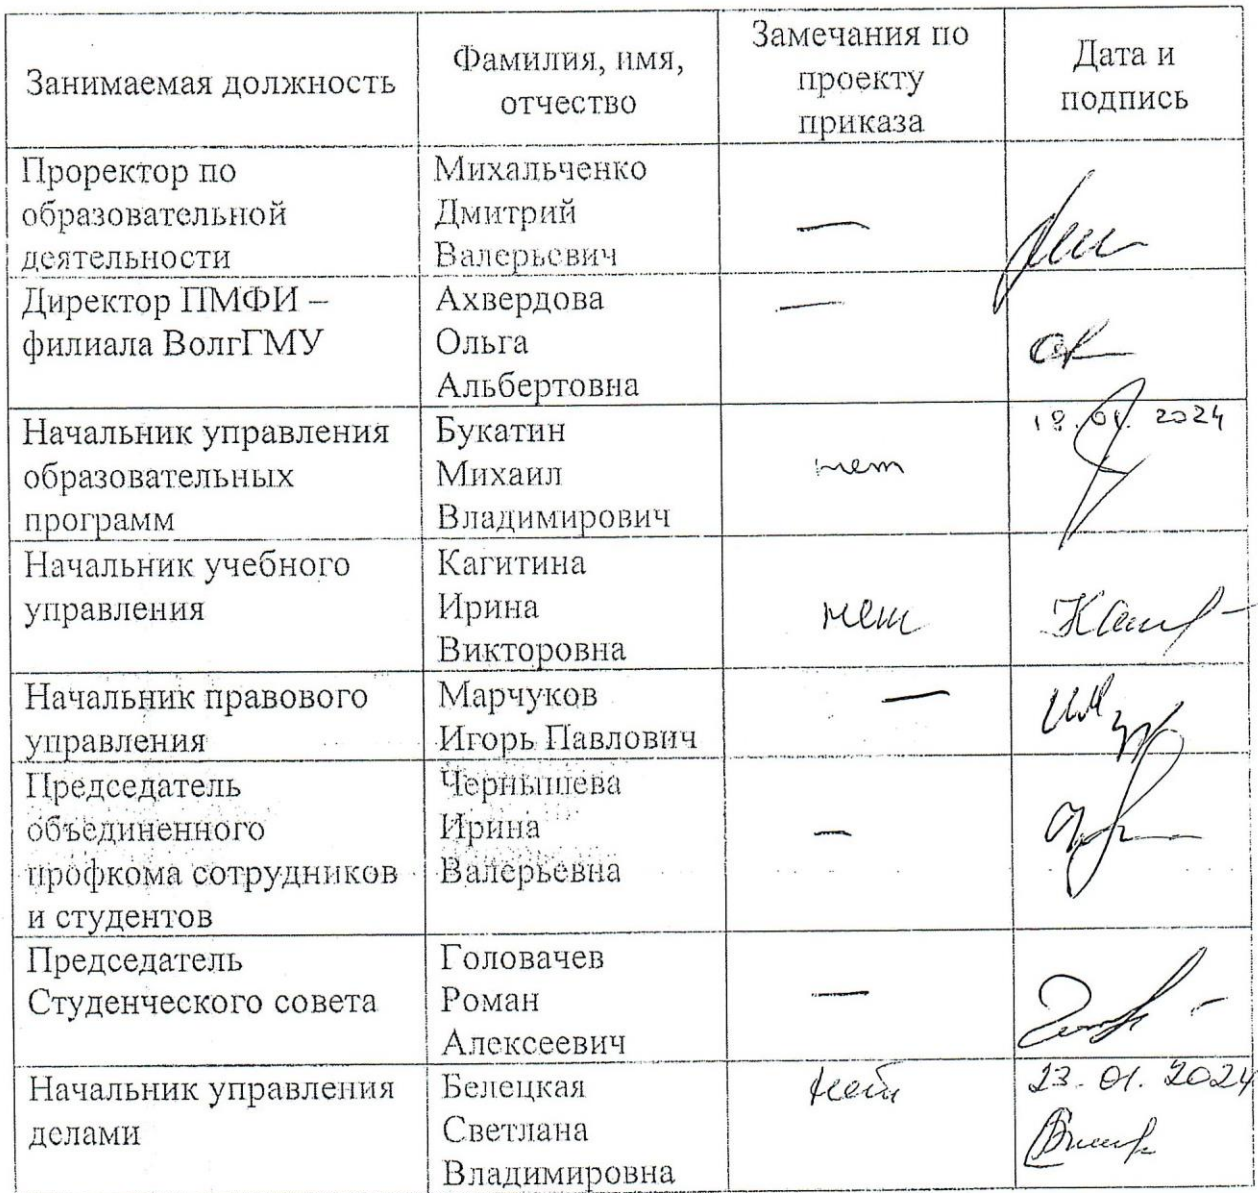 Занимаемая должность
Фамилия, имя,
отчество
Замечания по
проекту
приказа
Дата и
подпись
Проректор по
образовательной
деятельности
Михальченко
Дмитрий
Валерьевич
—
Директор ПМФИ –
филиала ВолгГМУ
Ахвердова
Ольга
Альбертовна
—
Начальник управления
образовательных
программ
Букатин
Михаил
Владимирович
нет
18.01.2024
Начальник учебного
управления
Кагитина
Ирина
Викторовна
нет
Начальник правового
управления
Марчуков
Игорь Павлович
—
Председатель
объединенного
профкома сотрудников
и студентов
Чернышева
Ирина
Валерьевна
—
Председатель
Студенческого совета
Головачев
Роман
Алексеевич
—
Начальник управления
делами
Белецкая
Светлана
Владимировна
нет
23.01.2024